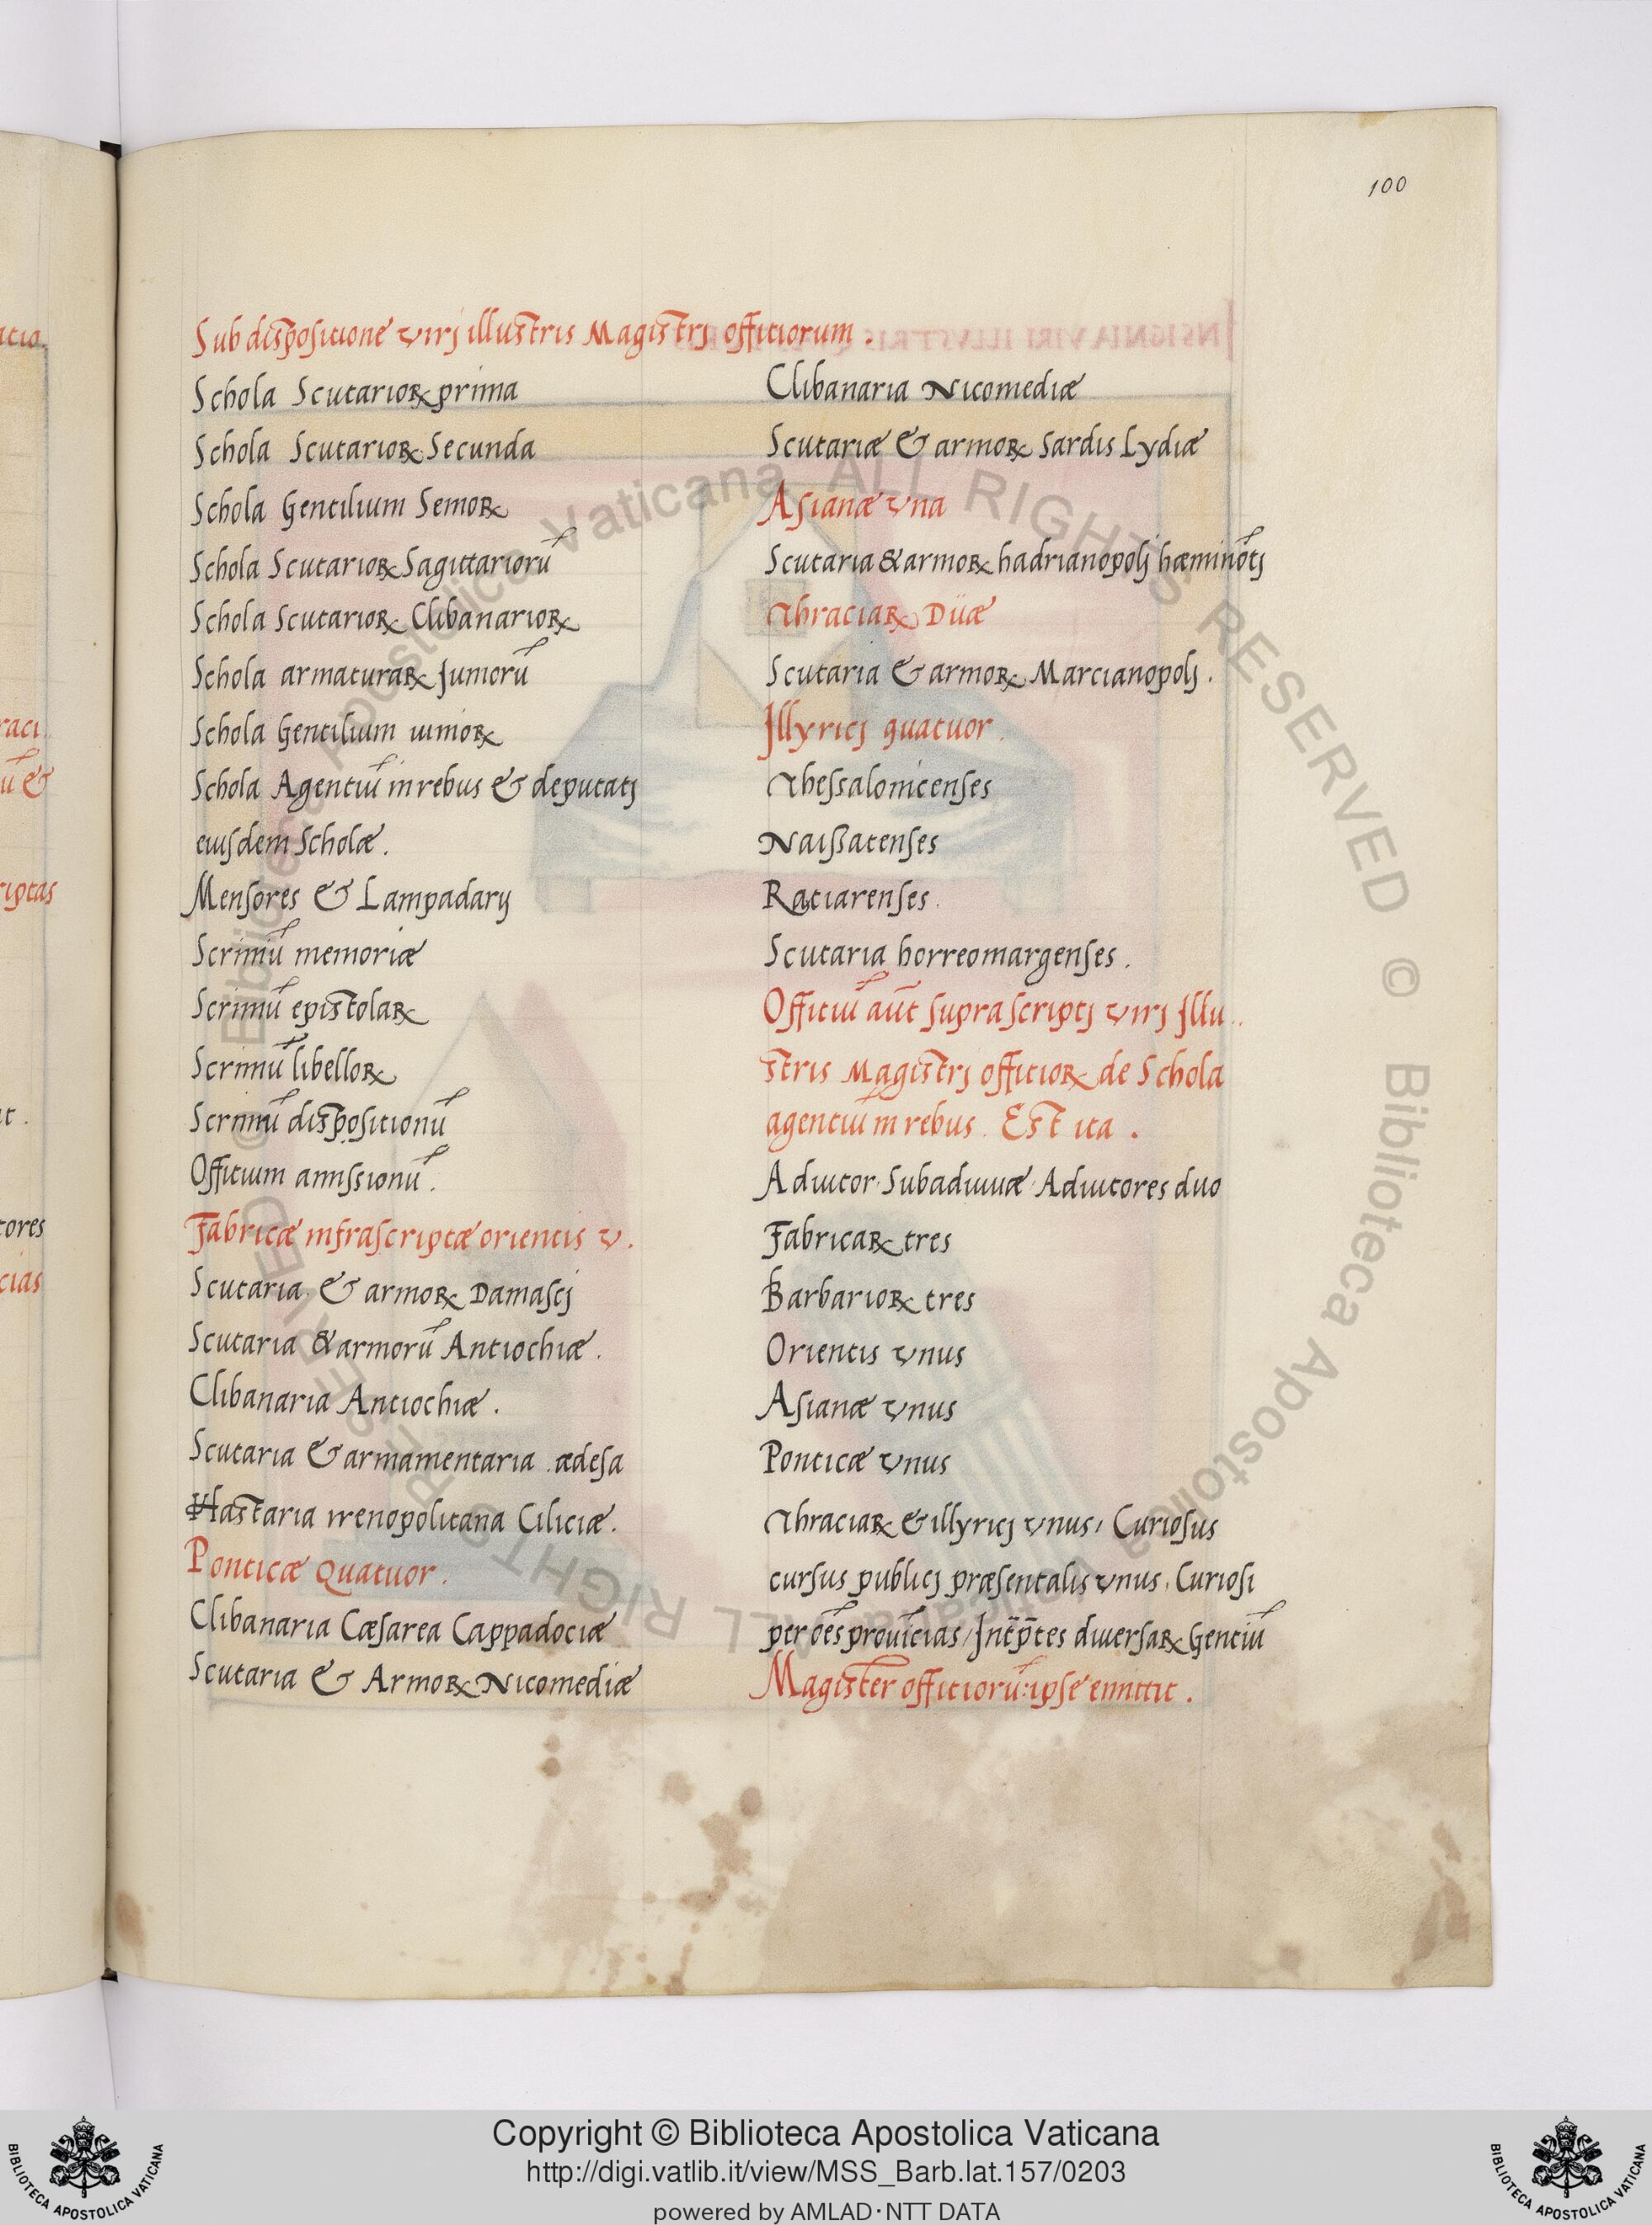 100
Sub dispositione virj illustris Magistrj officiorum .
Schola Scutarioꝝ prima
Schola Scutarioꝝ Secunda
Schola Gentilium Semoꝝ
Schola Scutarioꝝ Sagittariorū
Schola Scutarioꝝ Clibanarioꝝ
Schola armaturaꝝ Juniorū
Schola Gentilium iunioꝝ
Schola Agentiū in rebus & deputatj
eiusdem Scholæ .
Mensores & Lampadarij
Scriniū memoriæ
Scriniū epistolaꝝ
Scriniū libelloꝝ
Scriniū dispositionū
Officium amissionū .
Fabricæ infrascriptæ orientis v .
Scutaria & armoꝝ Damascj
Scutaria & armorū Antiochiæ .
Clibanaria Antiochiæ .
Scutaria & armamentaria ædesa
Hastaria irenopolitana Ciliciæ .
Ponticæ Quatuor .
Clibanaria Cæsarea Cappadociæ
Scutaria & Armoꝝ Nicomediæ
Clibanaria Nicomediæ
Scutariæ & armoꝝ Sardis Lydiæ
Asianæ vna
Scutaria & armoꝝ hadrianopolj hæminōtj
Thraciaꝝ Düæ
Scutaria & armoꝝ Marcianopolj .
Jllyricj quatuor .
Thessalonicenses
Naißatenses
Ratiarenses .
Scutaria horreomargenses .
Officiū aūt suprascriptj virj Jllu..
stris Magistrj officioꝝ de Schola
agentiū in rebus . Est ita .
Adiutor · Subadiuuæ · Adiutores duo
Fabricaꝝ tres
Barbarioꝝ tres
Orientis vnus
Asianæ vnus
Ponticæ vnus
Thraciaꝝ & illyricj vnus, Curiosus
cursus publicj præsentalis vnus, Curiosi
per ōēs prouīcias, Jnt̄p̄tes diuersaꝝ Gentiū
Magister officiorū: ipse emittit .
Copyright © Biblioteca Apostolica Vaticana
http://digi.vatlib.it/view/MSS_Barb.lat.157/0203
powered by AMLAD·NTT DATA